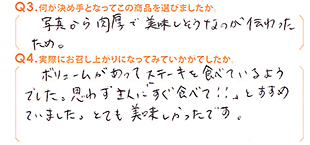 Q3.何が決め手となってこの商品を選びましたか。
写真から肉厚で美味しそうなのが伝わった
ため。
Q4.実際にお召し上がりになってみていかがでしたか。
ボリュームがあってステーキを食べているよう
でした。思わず主人に「すぐ食べて!!」とすすめ
ていました。とても美味しかったです。